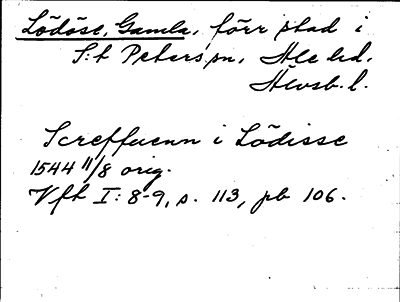 Lödöse, Gamla, förr stad i
S:t Peters sn, Ale hd,
Älvsb. l.
Screffuenn i Lödisse
1544 11/8 orig.
Vfh I: 8-9, s. 113, pb 106.